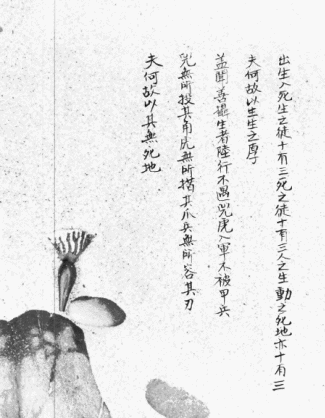 出生入死生之徒十有三死之徒十有三人之生動之死地亦十有三
夫何故以生生之厚
蓋聞善攝生者陸行不遇兕虎入軍不被甲兵
兕無所投其角虎無所措其爪兵無所容其刃
夫何故以其無死地